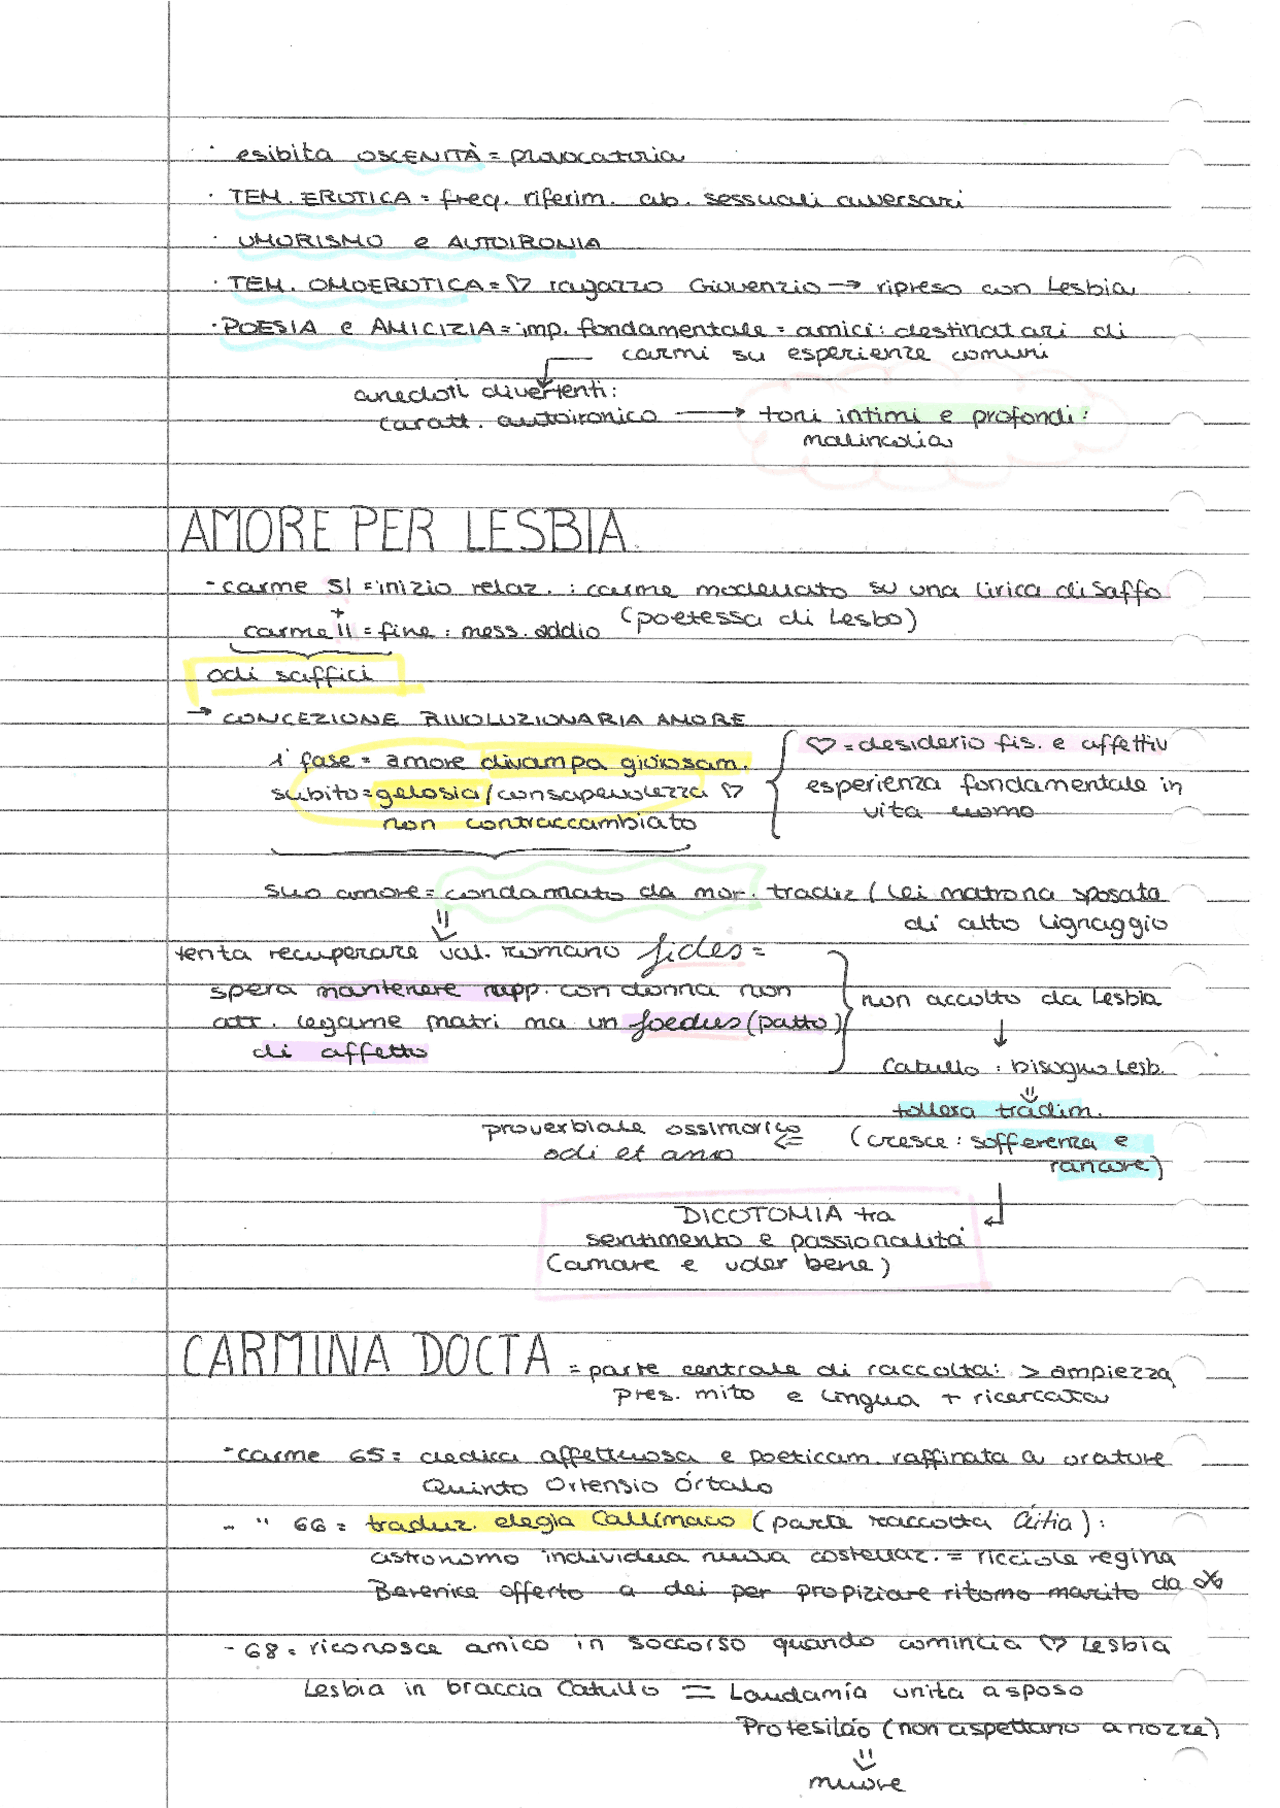 · esibita OSCENITÀ = provocatoria
· TEM. EROTICA = freq. riferim. ab. sessuali avversari
· UMORISMO e AUTOIRONIA
· TEM. OMOEROTICA = ♡ ragazzo Giovenzio → ripreso con Lesbia
· POESIA e AMICIZIA = imp. fondamentale = amici: destinatari di
carmi su esperienze comuni
anedoti divertenti:
caratt. autoironico → toni intimi e profondi:
malincolia
AMORE PER LESBIA
- carme 51 = inizio relaz. : carme modellato su una lirica di Saffo
+ (poetessa di Lesbo)
carme 11 = fine : mess. addio
odi saffici
→ CONCEZIONE RIVOLUZIONARIA AMORE
1ª fase = amore divampa gioiosam.
subito = gelosia / consapevolezza ♡
non contraccambiato
♡ = desiderio fis. e affettiv
esperienza fondamentale in
vita uomo
suo amore = condannato da mor. tradiz (lei matrona sposata
di alto lignaggio
⇓
tenta recuperare val. romano fides =
spera mantenere rapp. con donna non
att. legame matri ma un foedus (patto)
di affetto
non accolto da Lesbia
↓
Catullo : bisogno Lesb.
⇓
tollera tradim.
(cresce : sofferenza e
rancore)
proverbiale ossimorico ⇐
odi et amo
DICOTOMIA tra
sentimento e passionalità
(amare e voler bene)
CARMINA DOCTA = parte centrale di raccolta: > ampiezza
pres. mito e lingua + ricercata
- carme 65 = dedica affettuosa e poeticam. raffinata a oratore
Quinto Ortensio Órtalo
- " 66 = traduz. elegia Callimaco (parte raccolta Áitia) :
astronomo individua nuova costellaz. = ricciolo regina
Berenice offerto a dei per propiziare ritorno marito da
- 68 = riconosce amico in soccorso quando comincia ♡ Lesbia
Lesbia in braccia Catullo = Laudamía unita a sposo
Protesilào (non aspettano a nozze)
⇓
muore